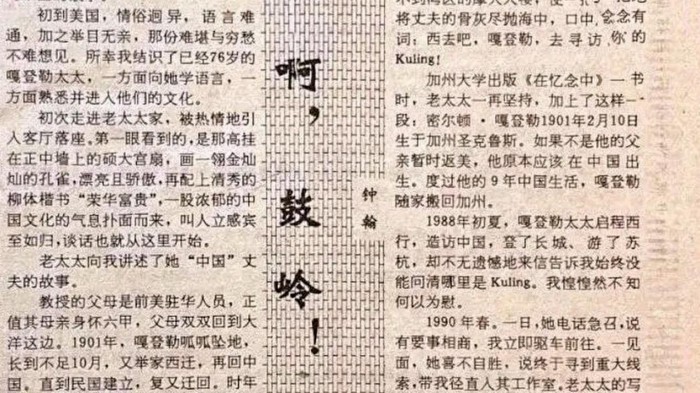 初到美国，情俗迥异，语言难
通，加之举目无亲，那份难堪与穷愁
不难想见。所幸我结识了已经76岁的
嘎登勒太太，一方面向她学语言，一
方面熟悉并进入他们的文化。
初次走进老太太家，被热情地引
入客厅落座。第一眼看到的，是那高挂
在正中墙上的硕大宫扇，画一翎金灿
灿的孔雀，漂亮且骄傲，再配上清秀的
柳体楷书“荣华富贵”，一股浓郁的中
国文化的气息扑面而来，叫人立感宾
至如归，谈话也就从这里开始。
老太太向我讲述了她“中国”丈
夫的故事。
教授的父母是前美驻华人员，正
值其母亲身怀六甲，父母双双回到大
洋这边。1901年，嘎登勒呱呱坠地，
长到不足10月，又举家西迁，再回中
国。直到民国建立，复又迁回。时年
啊，鼓岭！
钟翰
将丈夫的骨灰尽抛海中，口中念念有
词：西去吧，嘎登勒，去寻访你的
Kuling!
加州大学出版《在忆念中》一书
时，老太太一再坚持，加上了这样一
段：密尔顿·嘎登勒1901年2月10日
生于加州圣克鲁斯。如果不是他的父
亲暂时返美，他原本应该在中国出
生。度过他的9年中国生活，嘎登勒
随家搬回加州。
1988年初夏，嘎登勒太太启程西
行，造访中国，登了长城、游了苏
杭，却不无遗憾地来信告诉我始终没
能问清哪里是Kuling。我惶惶然不知
何以为慰。
1990年春。一日，她电话急召，说
有要事相商，我立即驱车前往。一见
面，她喜不自胜，说终于寻到重大线
索，带我径直入其工作室。老太太的写